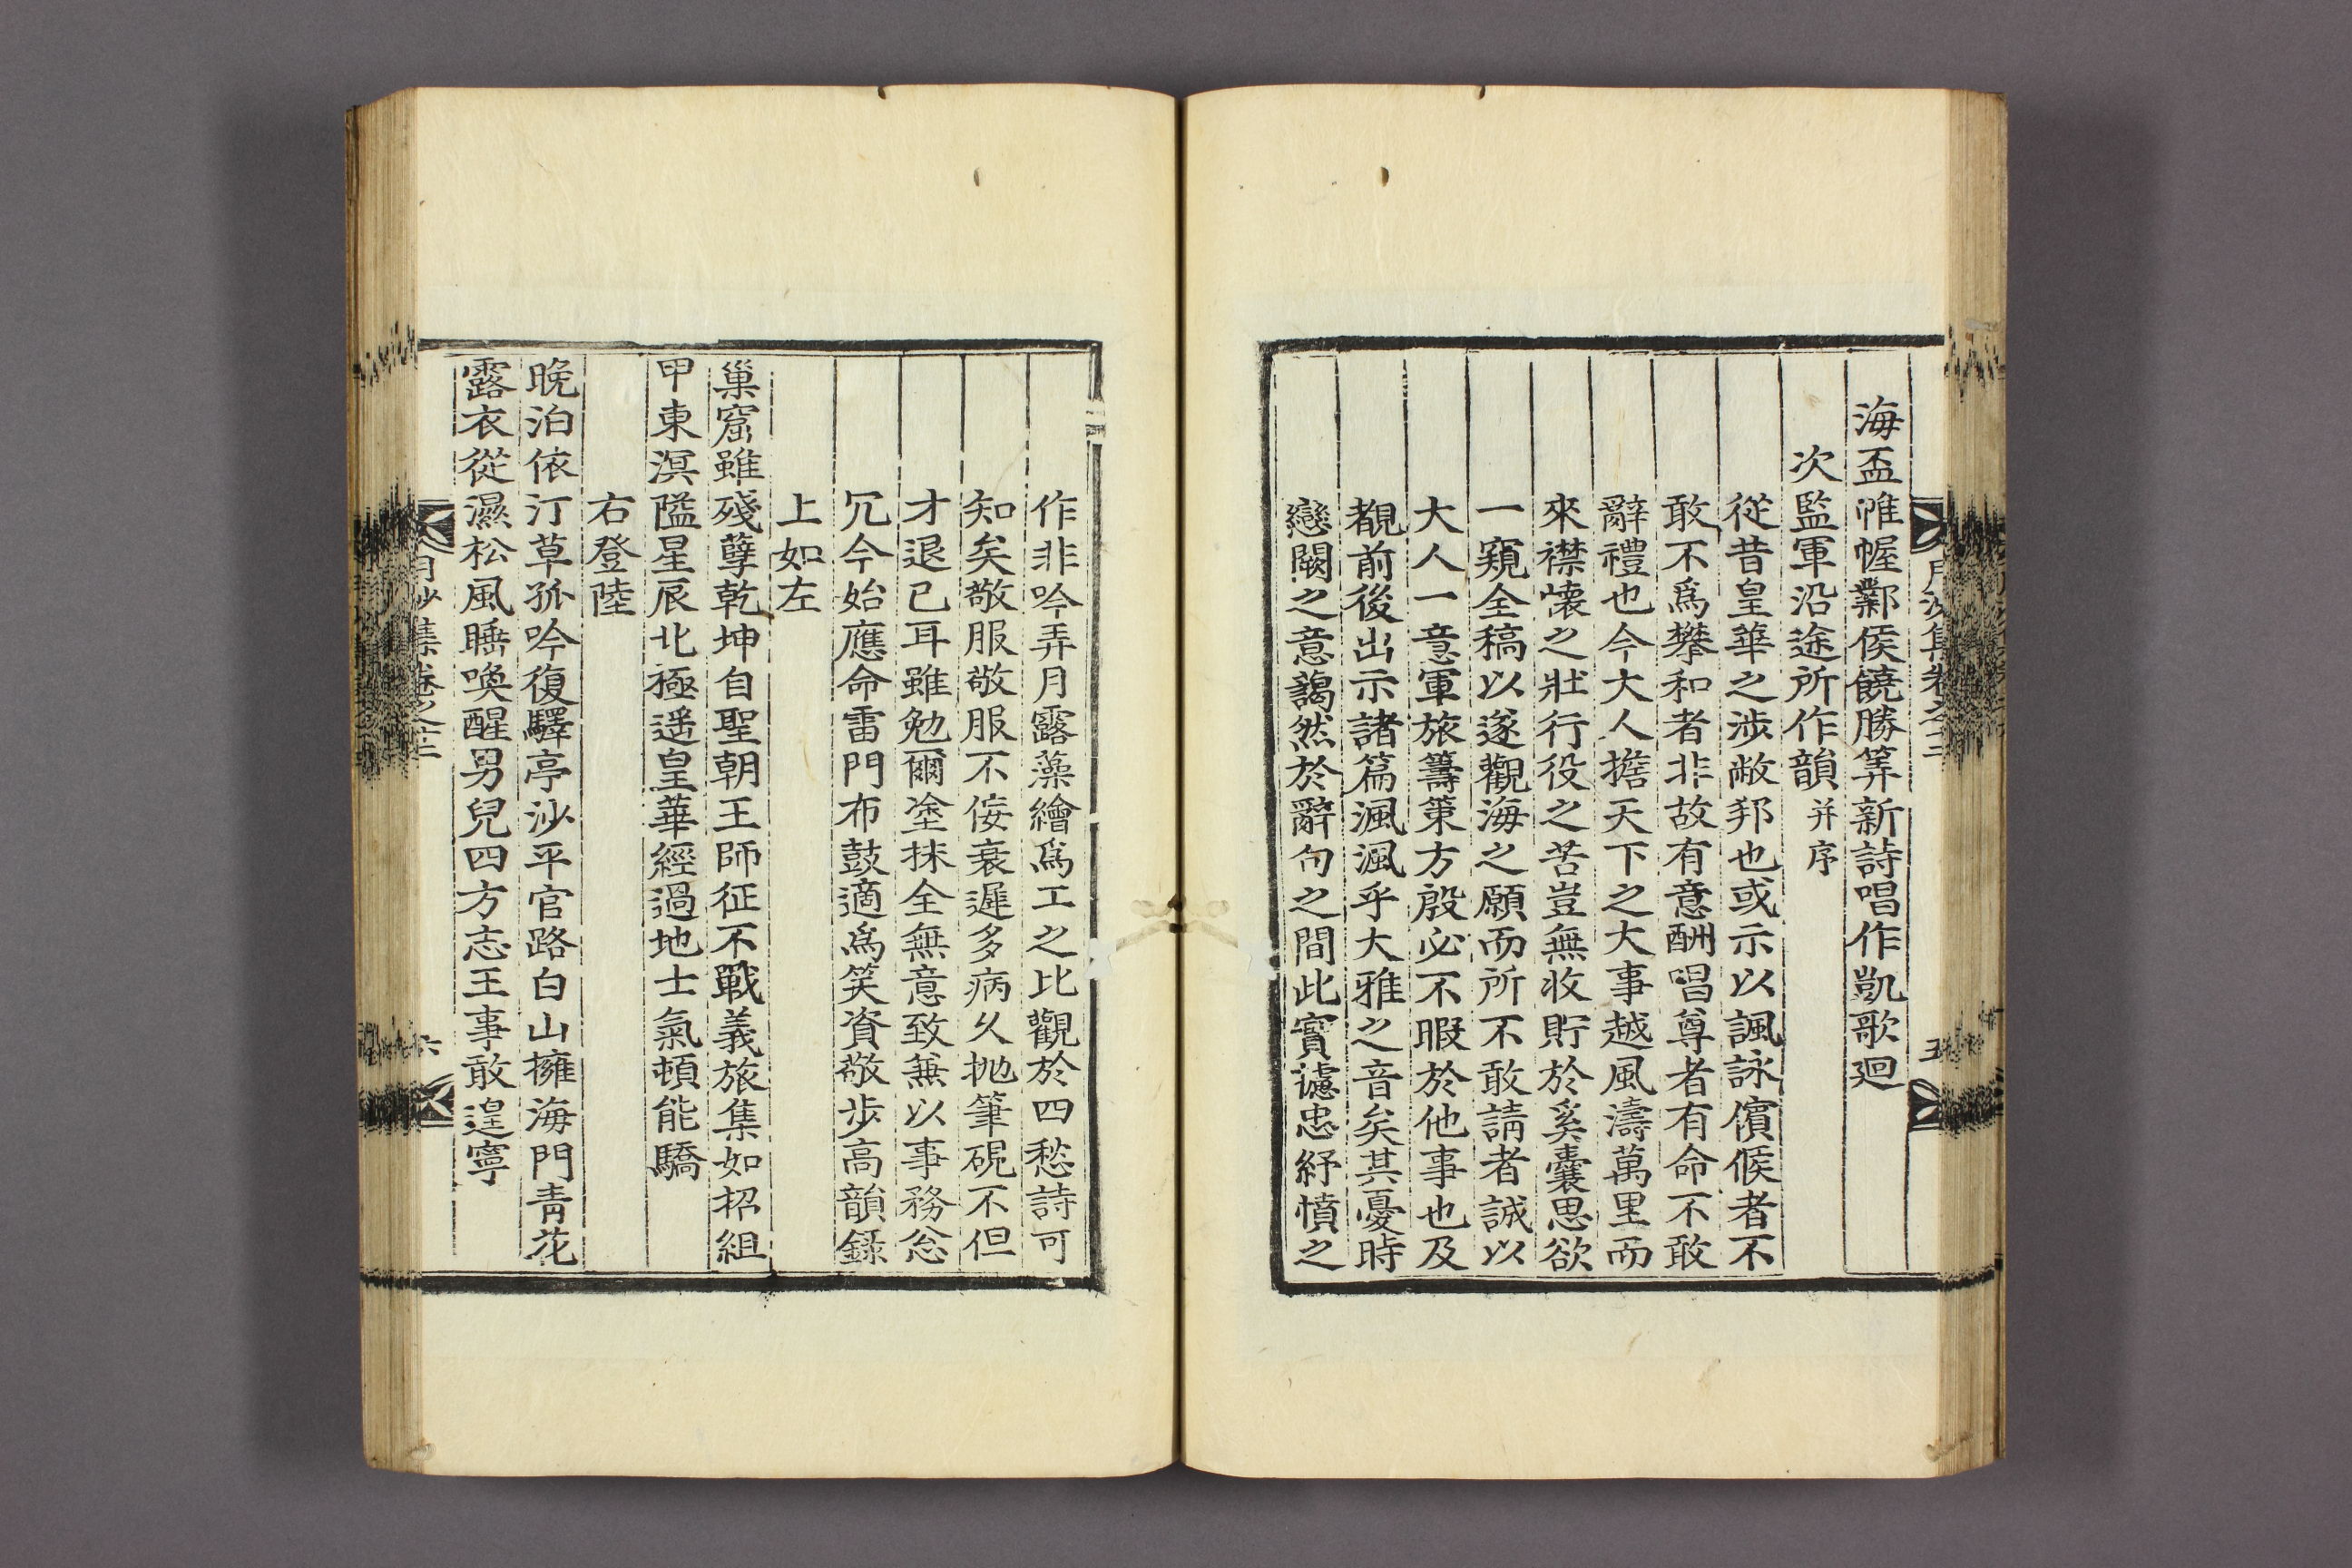 月沙集卷之三
五
海盃帷幄酇侯饒勝筭新詩唱作凱歌廻
次監軍沿途所作韻 并序
從昔皇華之涉敝邦也或示以諷詠儐𠊱者不
敢不爲攀和者非故有意酬唱尊者有命不敢
辭禮也今大人擔天下之大事越風濤萬里而
來襟懷之壯行役之苦豈無收貯於奚囊思欲
一窺全稿以遂觀海之願而所不敢請者誠以
大人一意軍旅籌策方殷必不暇於他事也及
覩前後出示諸篇渢渢乎大雅之音矣其憂時
戀闕之意藹然於辭句之間此實攄忠紓憤之
作非吟弄月露藻繪爲工之比觀於四愁詩可
知矣敬服敬服不佞衰遲多病久抛筆硯不但
才退已耳雖勉爾塗抹全無意致兼以事務忩
冗今始應命雷門布鼓適爲笑資敬步高韻錄
上如左
巢窟雖殘孽乾坤自聖朝王師征不戰義旅集如招組
甲東溟隘星辰北極遥皇華經過地士氣頓能驕
右登陸
晚泊依汀草孤吟復驛亭沙平官路白山擁海門青花
露衣從濕松風睡喚醒男兒四方志王事敢遑寧
月沙集卷之三
六